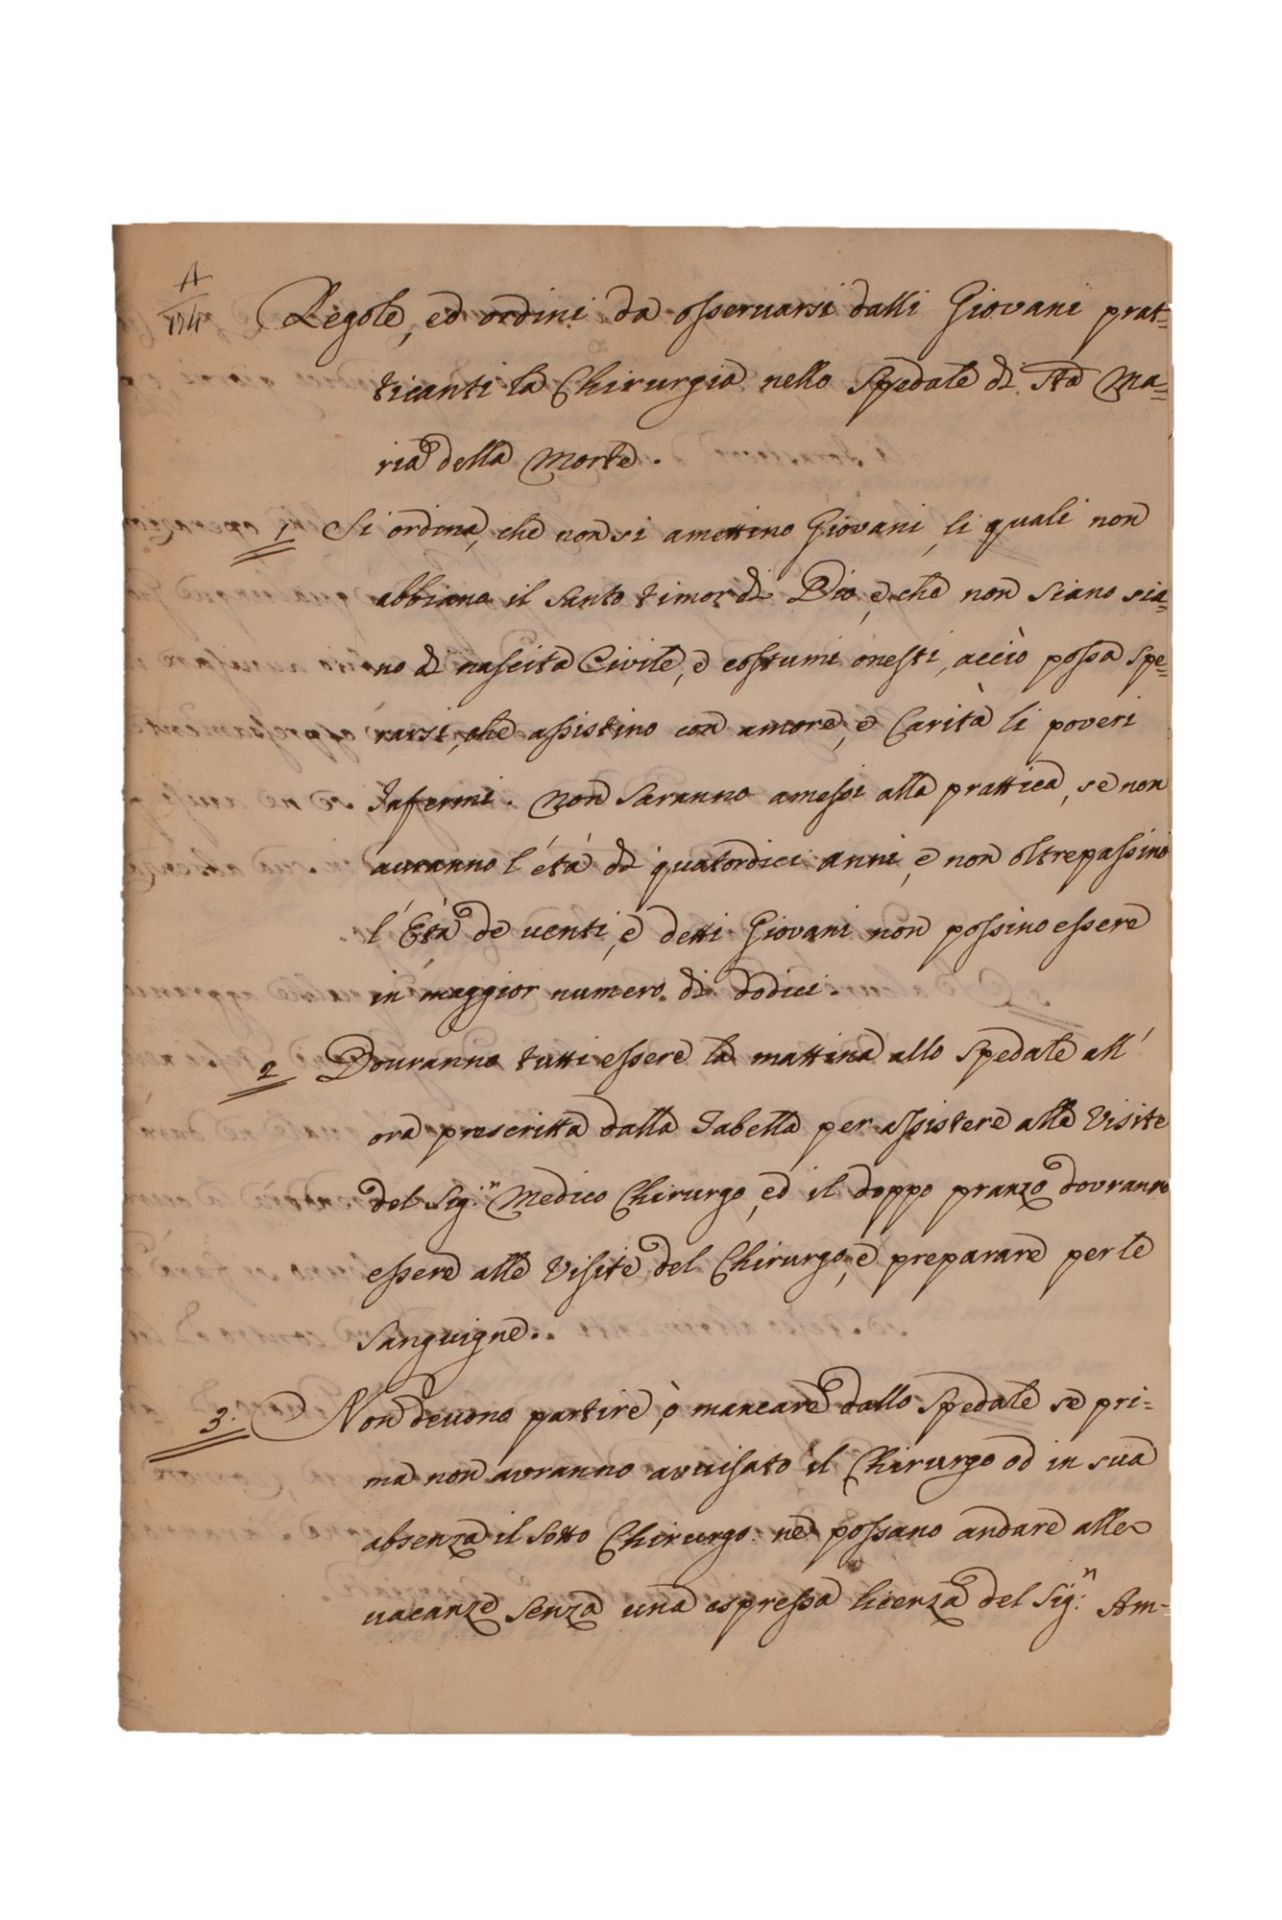 A
Regole, ed ordini da osseruarsi dalli Giovani prat=
ticanti la Chirurgia nello Spedale di Sta Ma=
ria della Morte.
1 Si ordina, che non si amettino Giovani, li quali non
abbiano il santo timor di Dio, e che non siano sia=
no di nascita Civile, e costumi onesti, acciò possa spe=
rarsi, che assistino con amore, e Carità li poveri
Infermi. Non saranno amessi alla prattica, se non
auranno l'età di quatordici anni, e non oltrepassino
l'Età de uenti, e detti Giovani non possino essere
in maggior numero di dodici.
2 Douranno tutti essere la mattina allo Spedale all'
ora prescritta dalla Tabella per assistere alle Visite
del Sig.r Medico Chirurgo, ed il doppo pranzo dovranno
essere alle Visite del Chirurgo, e preparare per le
sanguigne.
3. Non deuono partire, ò mancare dallo Spedale se pri=
ma non avranno avuisato il Chirurgo od in sua
absenza il sotto Chirurgo: ne possano andare alle
uacanze senza una espressa licenza del Sig.r Am-